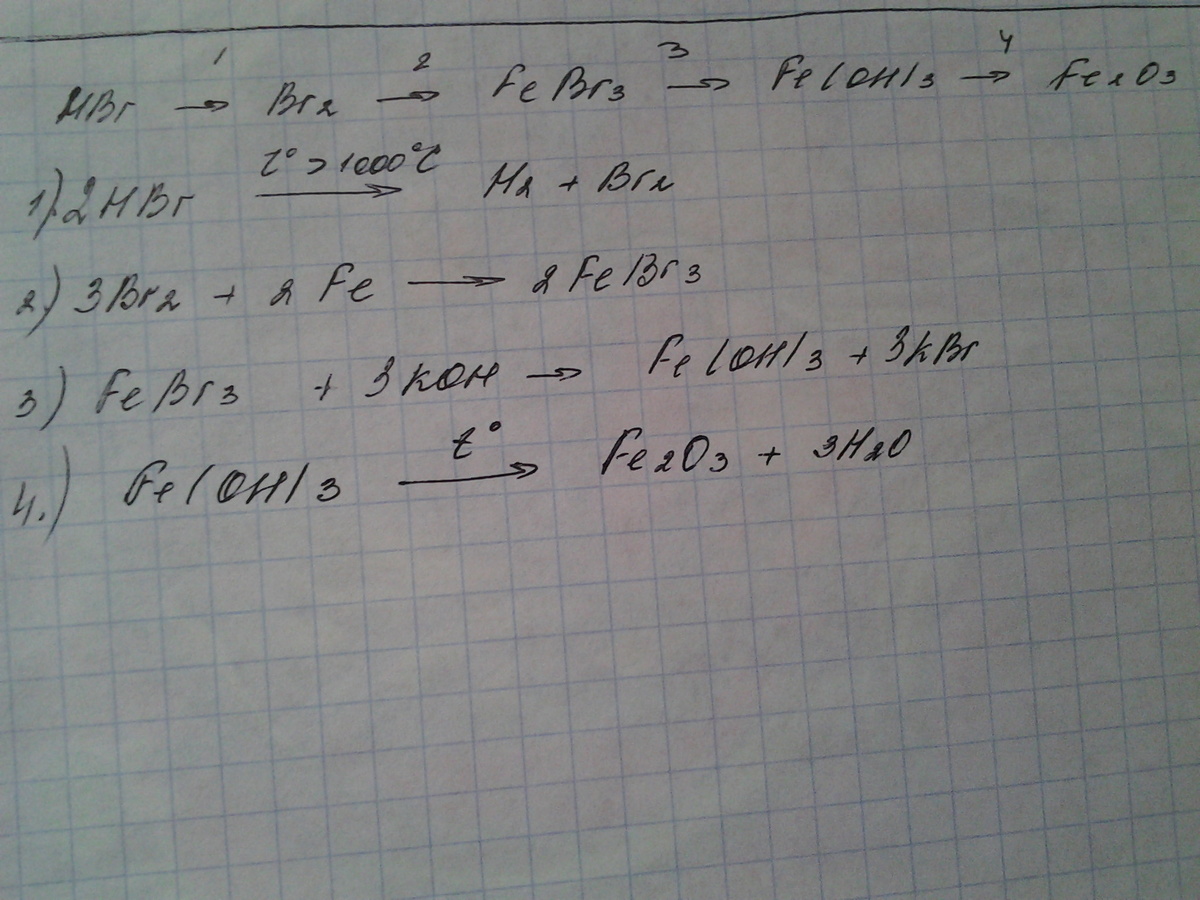 1 2 3 4
HBr → Br2 → FeBr3 → Fe(OH)3 → Fe2O3
1). 2HBr t° > 1000°C → H2 + Br2
2) 3Br2 + 2Fe → 2FeBr3
3) FeBr3 + 3KOH → Fe(OH)3 + 3KBr
4.) Fe(OH)3 t° → Fe2O3 + 3H2O